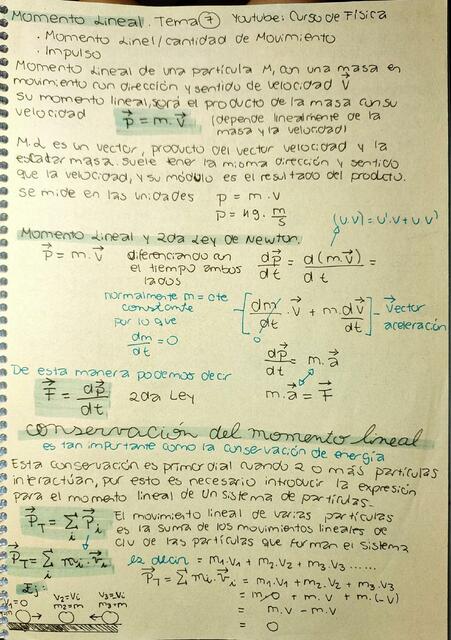 Momento Lineal. Tema 7 Youtube: Curso de Física
· Momento Linel/cantidad de Movimiento
· Impulso
Momento Lineal de una partícula M, con una masa en
movimiento con dirección y sentido de velocidad v⃗
su momento lineal, será el producto de la masa con su
velocidad p⃗ = m·v⃗ (depende linealmente de la
masa y la velocidad)
M.L es un vector, producto del vector velocidad y la
escalar masa. suele tener la misma dirección y sentido
que la velocidad, y su módulo es el resultado del producto.
se mide en las unidades p = m·v
p = kg · m/s
(u·v)=u'·v+u·v'
Momento Lineal y 2da Ley de Newton.
p⃗ = m·v⃗ diferenciando con el tiempo ambos lados dp⃗/dt = d(m·v⃗)/dt =
normalmente m = cte
constante
por lo que
dm/dt = 0
[dm/dt · v⃗ + m·dv⃗/dt] → Vector
0
aceleración
dp⃗/dt = m·a⃗
De esta manera podemos decir m·a⃗ = F⃗
F⃗ = dp⃗/dt 2da Ley
conservación del momento lineal
es tan importante como la conservación de energía
Esta conservación es primordial cuando 2 o más partículas
interactúan, por esto es necesario introducir la expresión
para el momento lineal de un sistema de partículas-
P⃗T = Σi P⃗i El movimiento lineal de varias partículas
es la suma de los movimientos lineales de
c/u de las partículas que forman el sistema
P⃗T = Σi mi·v⃗i es decir = m1·v1 + m2·v2 + m3·v3 .....
P⃗T = Σ mi·v⃗i = m1·v1 + m2·v2 + m3·v3
Ej:
v1=0 v2=vi v3=vi
m2=m m3=m
= m·0 + m·v + m·(-v)
= m·v - m·v
= 0